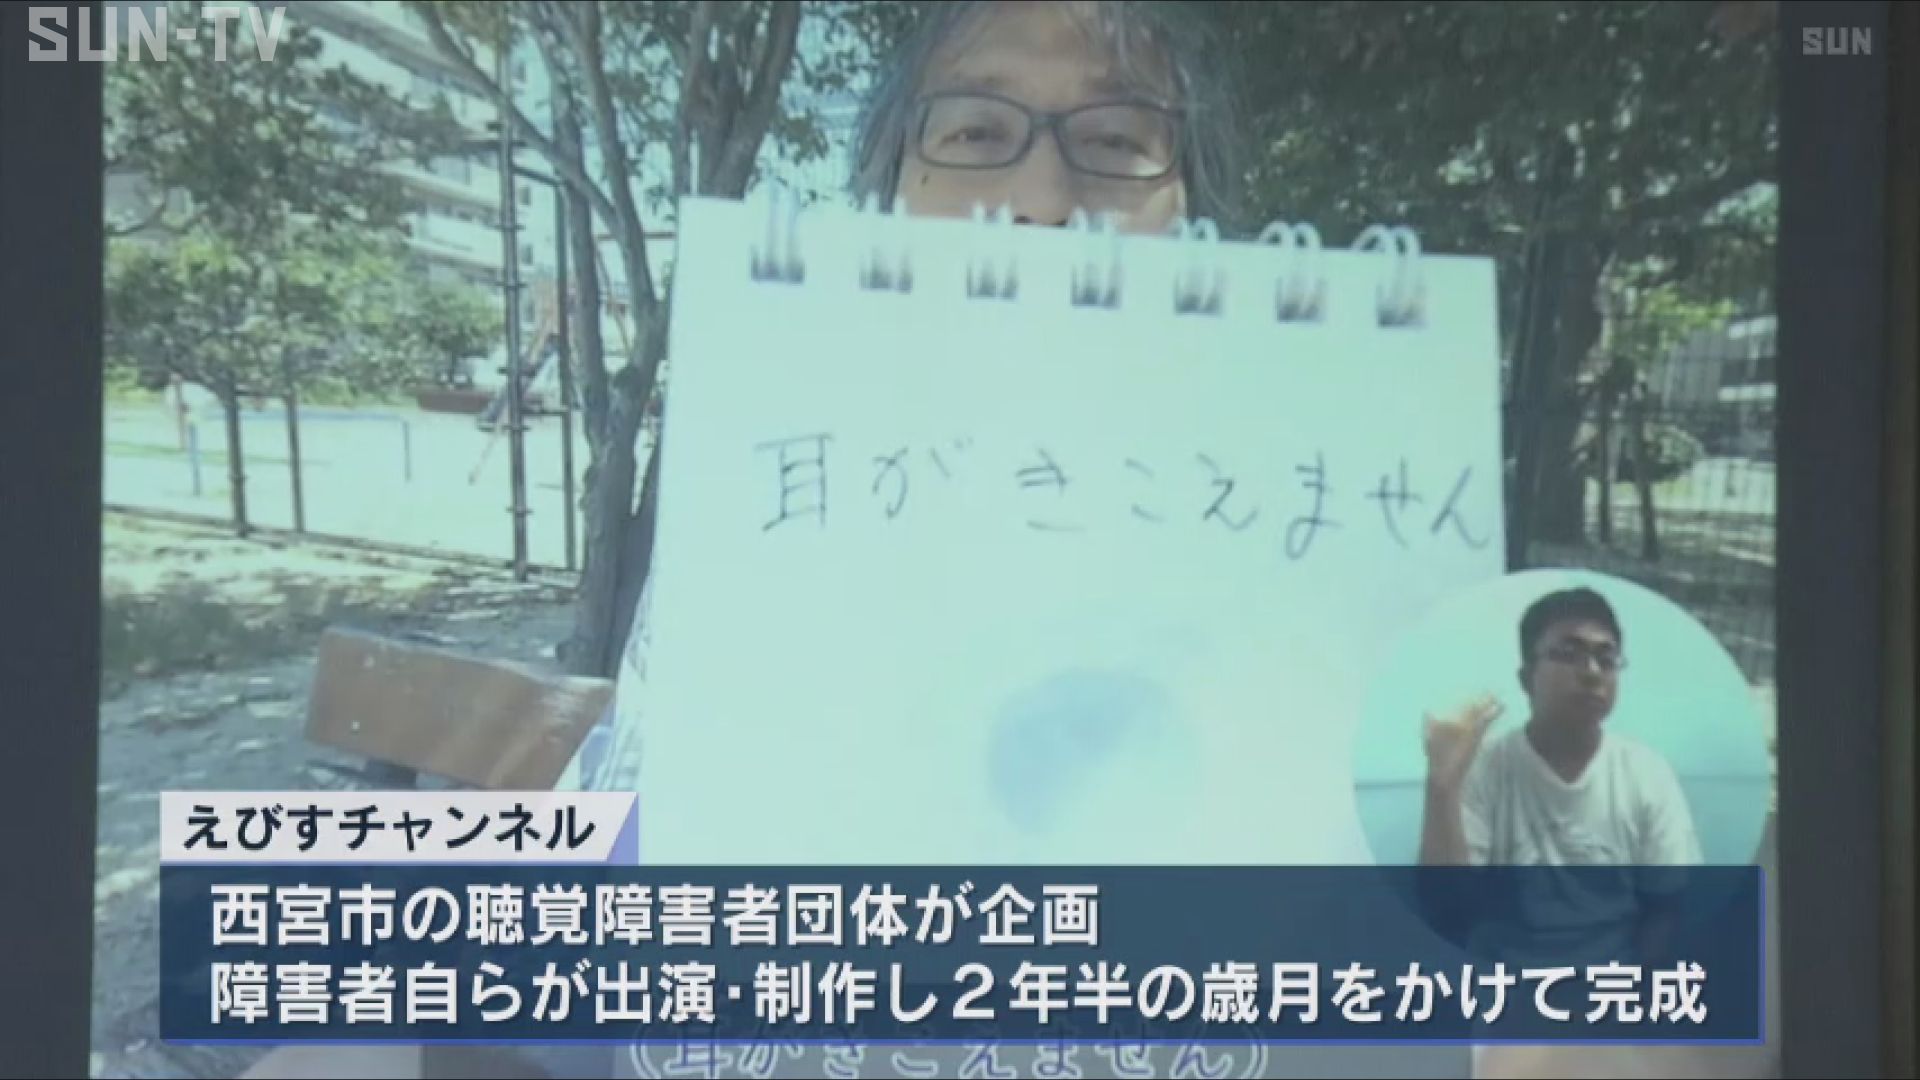 SUN-TV
SUN
耳がきこえません
えびすチャンネル
西宮市の聴覚障害者団体が企画
障害者自らが出演・制作し２年半の歳月をかけて完成
(耳がきこえません)